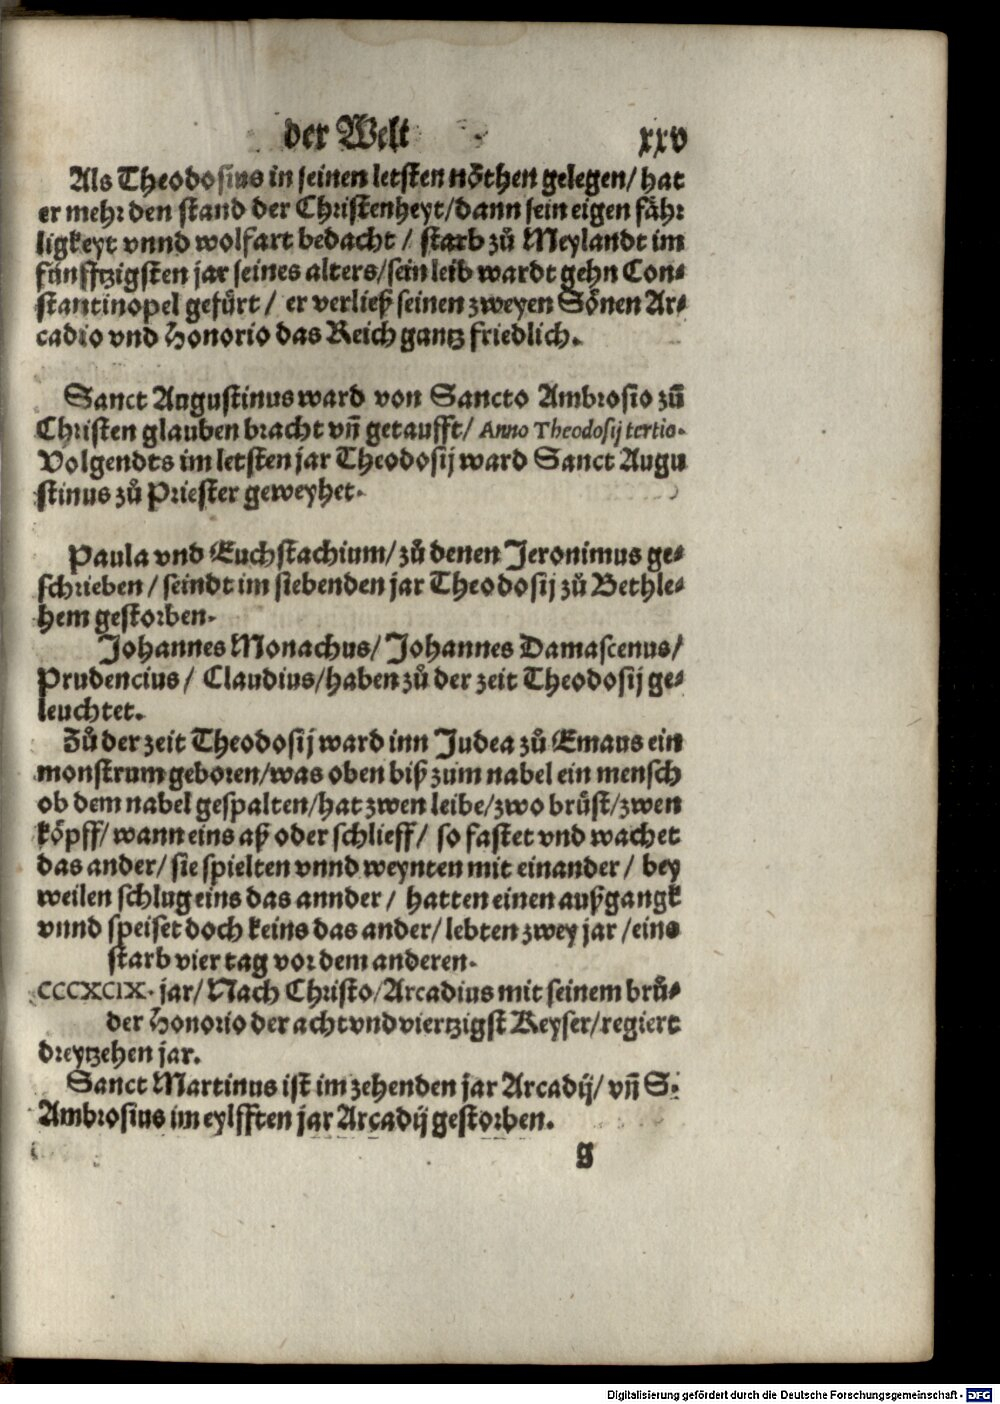 der Welt xxv
Als Theodosius in seinen letsten nöthen gelegen/ hat
er mehr den stand der Christenheyt/dann sein eigen fähr
ligkeyt vnnd wolfart bedacht / starb zů Meylandt im
fünfftzigsten jar seines alters/sein leib wardt gehn Con⸗
stantinopel gefürt/ er verließ seinen zweyen Sönen Ar⸗
cadio vnd Honorio das Reich gantz friedlich.
Sanct Augustinus ward von Sancto Ambrosio zů
Christen glauben bracht vñ getaufft/ Anno Theodosij tertio.
Volgendts im letsten jar Theodosij ward Sanct Augu
stinus zů Priester geweyhet.
Paula vnd Euchstachium/ zů denen Jeronimus ge⸗
schrieben / seindt im siebenden jar Theodosij zů Bethle⸗
hem gestorben.
Johannes Monachus/ Johannes Damascenus/
Prudencius/ Claudius/haben zů der zeit Theodosij ge⸗
leuchtet.
Zů der zeit Theodosij ward inn Judea zů Emaus ein
monstrum geboren/was oben biß zum nabel ein mensch
ob dem nabel gespalten/hat zwen leibe/zwo brüst/zwen
köpff/ wann eins aß oder schlieff/ so fastet vnd wachet
das ander/ sie spielten vnnd weynten mit einander/ bey
weilen schlug eins das annder/ hatten einen außgangk
vnnd speiset doch keins das ander/ lebten zwey jar /eins
starb vier tag vor dem anderen.
CCCXCIX. jar/ Nach Christo/Arcadius mit seinem brů⸗
der Honorio der acht vnd viertzigst Keyser/regiert
dreytzehen jar.
Sanct Martinus ist im zehenden jar Arcadij/ vñ S.
Ambrosius im eylfften jar Arcadij gestorben.
g
Digitalisierung gefördert durch die Deutsche Forschungsgemeinschaft - DFG